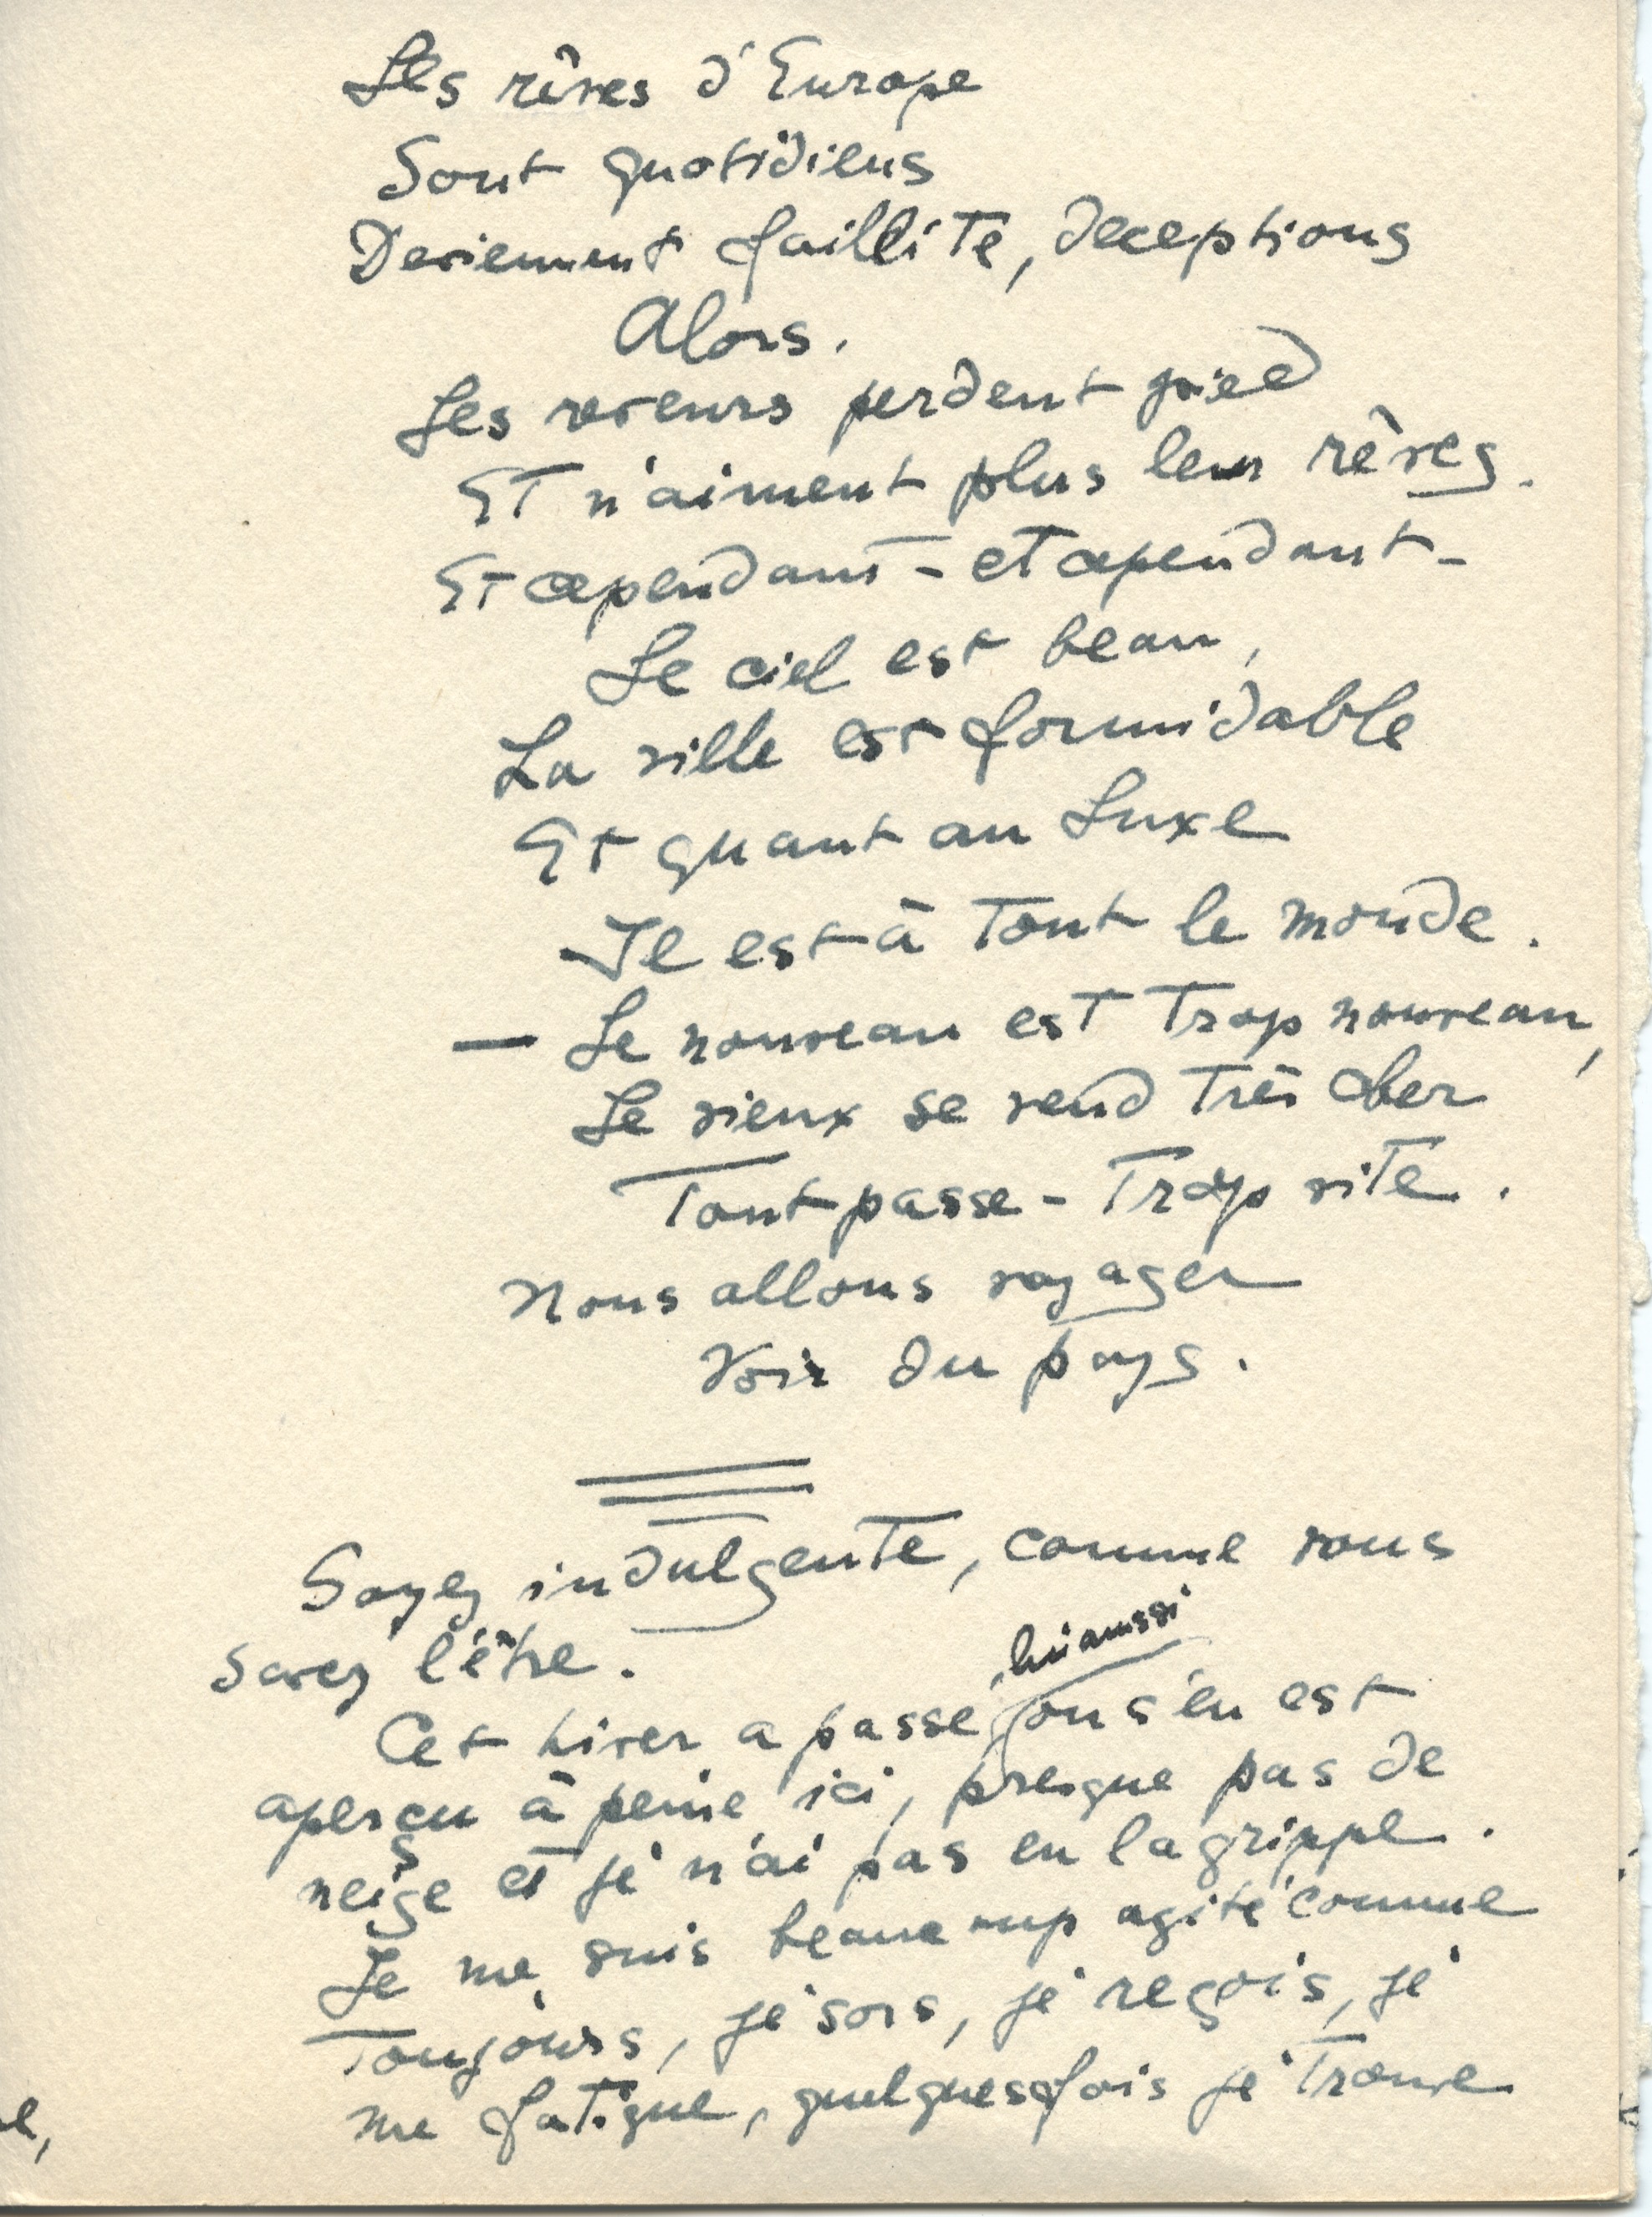 Les rêves d'Europe
Sont quotidiens
Deviennent faillite, deceptions
Alors.
Les reveurs perdent pied
Et n'aiment plus leur rêves.
Et cependant - et cependant -
Le ciel est beau,
La ville est formidable
Et quant au Luxe
Il est à Tout le monde.
— Le nouveau est Trop nouveau,
Le vieux se vend Très cher
Tout passe - Trop vite.
Nous allons voyager
Voir du pays.
Soyez indulgente, comme vous
savez l'être.
Cet hiver a passé, lui aussi, on s'en est
aperçu à peine ici, presque pas de
neige et je n'ai pas eu la grippe.
Je me suis beaucoup agité comme
Toujours, je sors, je reçois, je
me fatigue, quelquesfois je Trouve